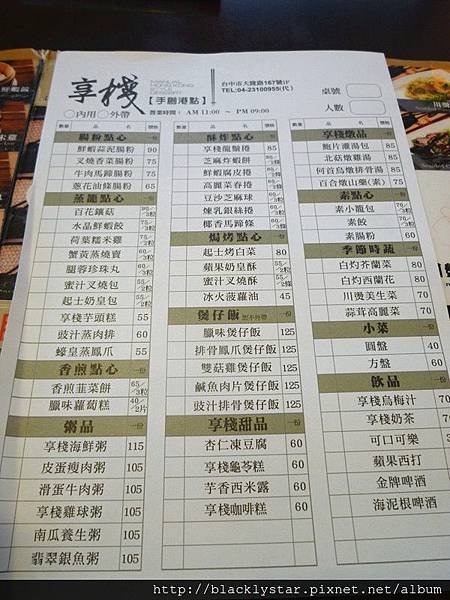 享棧
【手創港點】
台中市大隆路167號1F
TEL:04-23100955(代)
營業時間： AM 11:00 ～ PM 09:00
○內用 ○外帶
桌號
人數
數量 品名 價格
腸粉點心 一份
鮮蝦蒜泥腸粉 90
叉燒香菜腸粉 75
牛肉馬蹄腸粉 75
蔥花油條腸粉 65
蒸籠點心
百花釀菇
水晶鮮蝦餃
荷葉糯米雞
蟹黃蒸燒賣
關蓉珍珠丸
蜜汁叉燒包
起士奶皇包
享棧芋頭糕 55
豉汁蒸肉排 60
蠔皇蒸鳳爪 55
香煎點心 一份
香煎韮菜餅 65/3粒
臘味蘿蔔糕 40/2片
粥品 一份
享棧海鮮粥 115
皮蛋瘦肉粥 105
滑蛋牛肉粥 105
享棧雞球粥 105
南瓜養生粥 105
翡翠銀魚粥 105
數量 品名 價格
酥炸點心
享棧龍鬚捲
芝麻炸蝦餅
鮮蝦腐皮捲
高麗菜春捲
豆沙芝麻球
煉乳銀絲捲
椰香馬蹄條
焗烤點心 一份
起士烤白菜 80
蘋果奶皇酥
蜜汁叉燒酥
冰火菠蘿油 45
煲仔飯 恕不外帶 一份
臘味煲仔飯 125
排骨鳳爪煲仔飯 125
雙菇雞煲仔飯 125
鹹魚肉片煲仔飯 125
豉汁排骨煲仔飯 125
享棧甜品 一份
杏仁凍豆腐 60
享棧龜苓糕 60
芋香西米露 60
享棧咖啡糕 60
數量 品名 價格
享棧燉品
鮑片灌湯包
北菇燉雞湯
何首烏燉排骨湯
百合燉山藥(素)
素點心
素小籠包
素餃
素腸粉 60
季節時蔬
白灼芥蘭菜 80
白灼西蘭花 80
川燙美生菜 70
蒜茸高麗菜 70
小菜 一份
圓盤 40
方盤 60
飲品
享棧烏梅汁 70
享棧奶茶
可口可樂
蘋果西打
金牌啤酒
海泥根啤酒
http://blacklystar.pixnet.net/album